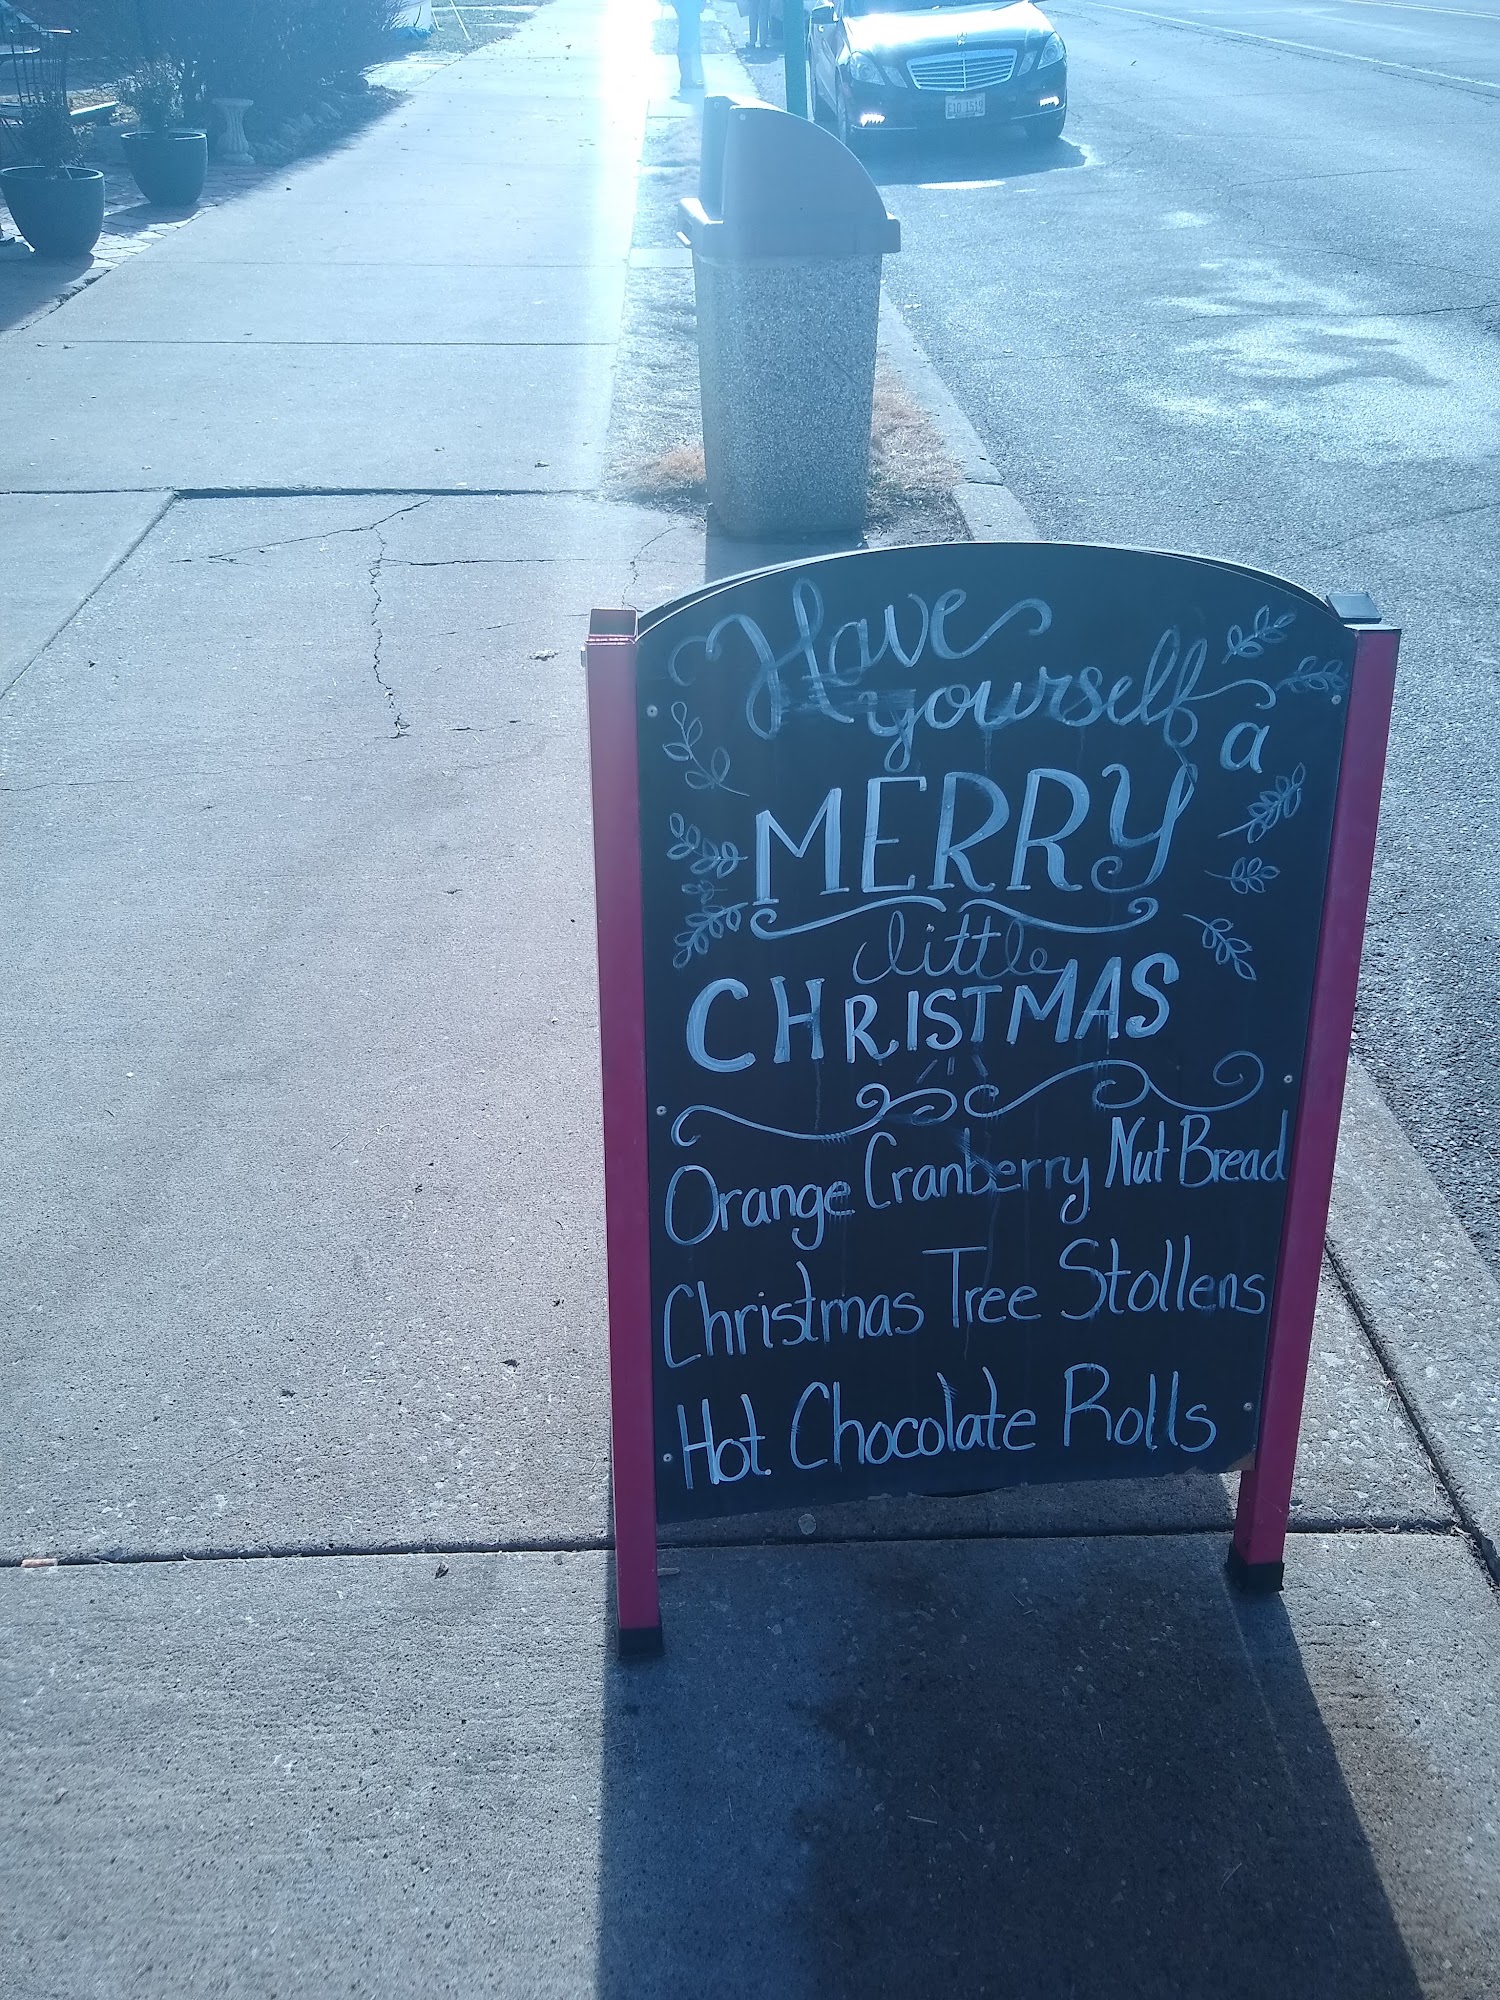 Have
yourself a
MERRY
little
CHRISTMAS
Orange Cranberry Nut Bread
Christmas Tree Stollens
Hot Chocolate Rolls